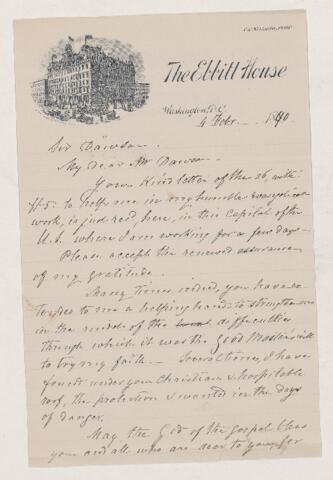 The Ebbitt House
Washington, D.C.
4 Febr. 1890
Sir Dawson
My dear Mr Dawson
Your kind letter of the 26, with
$5: to help me in my humble evangelical
work, is just recd, here, in this capital of the
U.S. where I am working for a few days -
Please accept the renewed assurance
of my gratitude.
Many times indeed, you have ex-
tended to me a helping hand to strengthen me
in the midst of the difficulties
through which it was the good Master's will
to try my faith - Several times, I have
found under your Christian & hospitable
roof, the protection I wanted in the days
of danger.
May the God of the gospel bless
you and all who are dear to you for